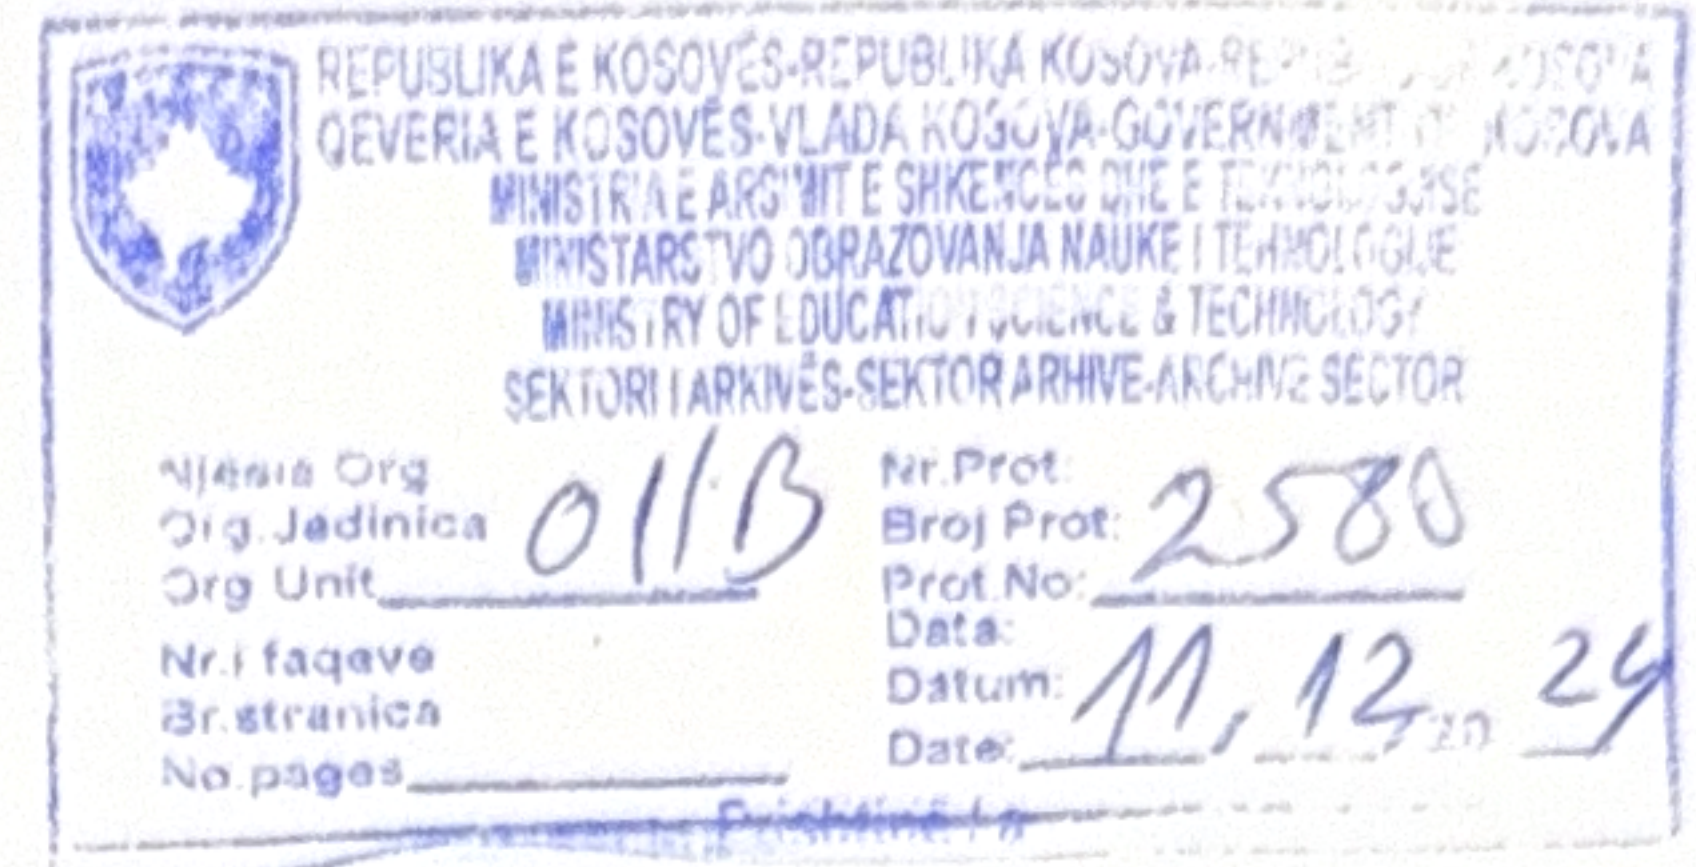 REPUBLIKA E KOSOVËS-REPUBLIKA KOSOVA-REPUBLIC OF KOSOVA
QEVERIA E KOSOVËS-VLADA KOSOVA-GOVERNMENT OF KOSOVA
MINISTRIA E ARSIMIT E SHKENCËS DHE E TEKNOLOGJISË
MINISTARSTVO OBRAZOVANJA NAUKE I TEHNOLOGIJE
MINISTRY OF EDUCATION SCIENCE & TECHNOLOGY
SEKTORI I ARKIVËS-SEKTOR ARHIVE-ARCHIVE SECTOR
Njësia Org
Org.Jedinica
Org Unit 011B
Nr.Prot:
Broj Prot:
Prot.No: 2580
Nr.i faqeve
Br.stranica
No.pages
Data:
Datum:
Date: 11, 12, 20 24
Prishtinë